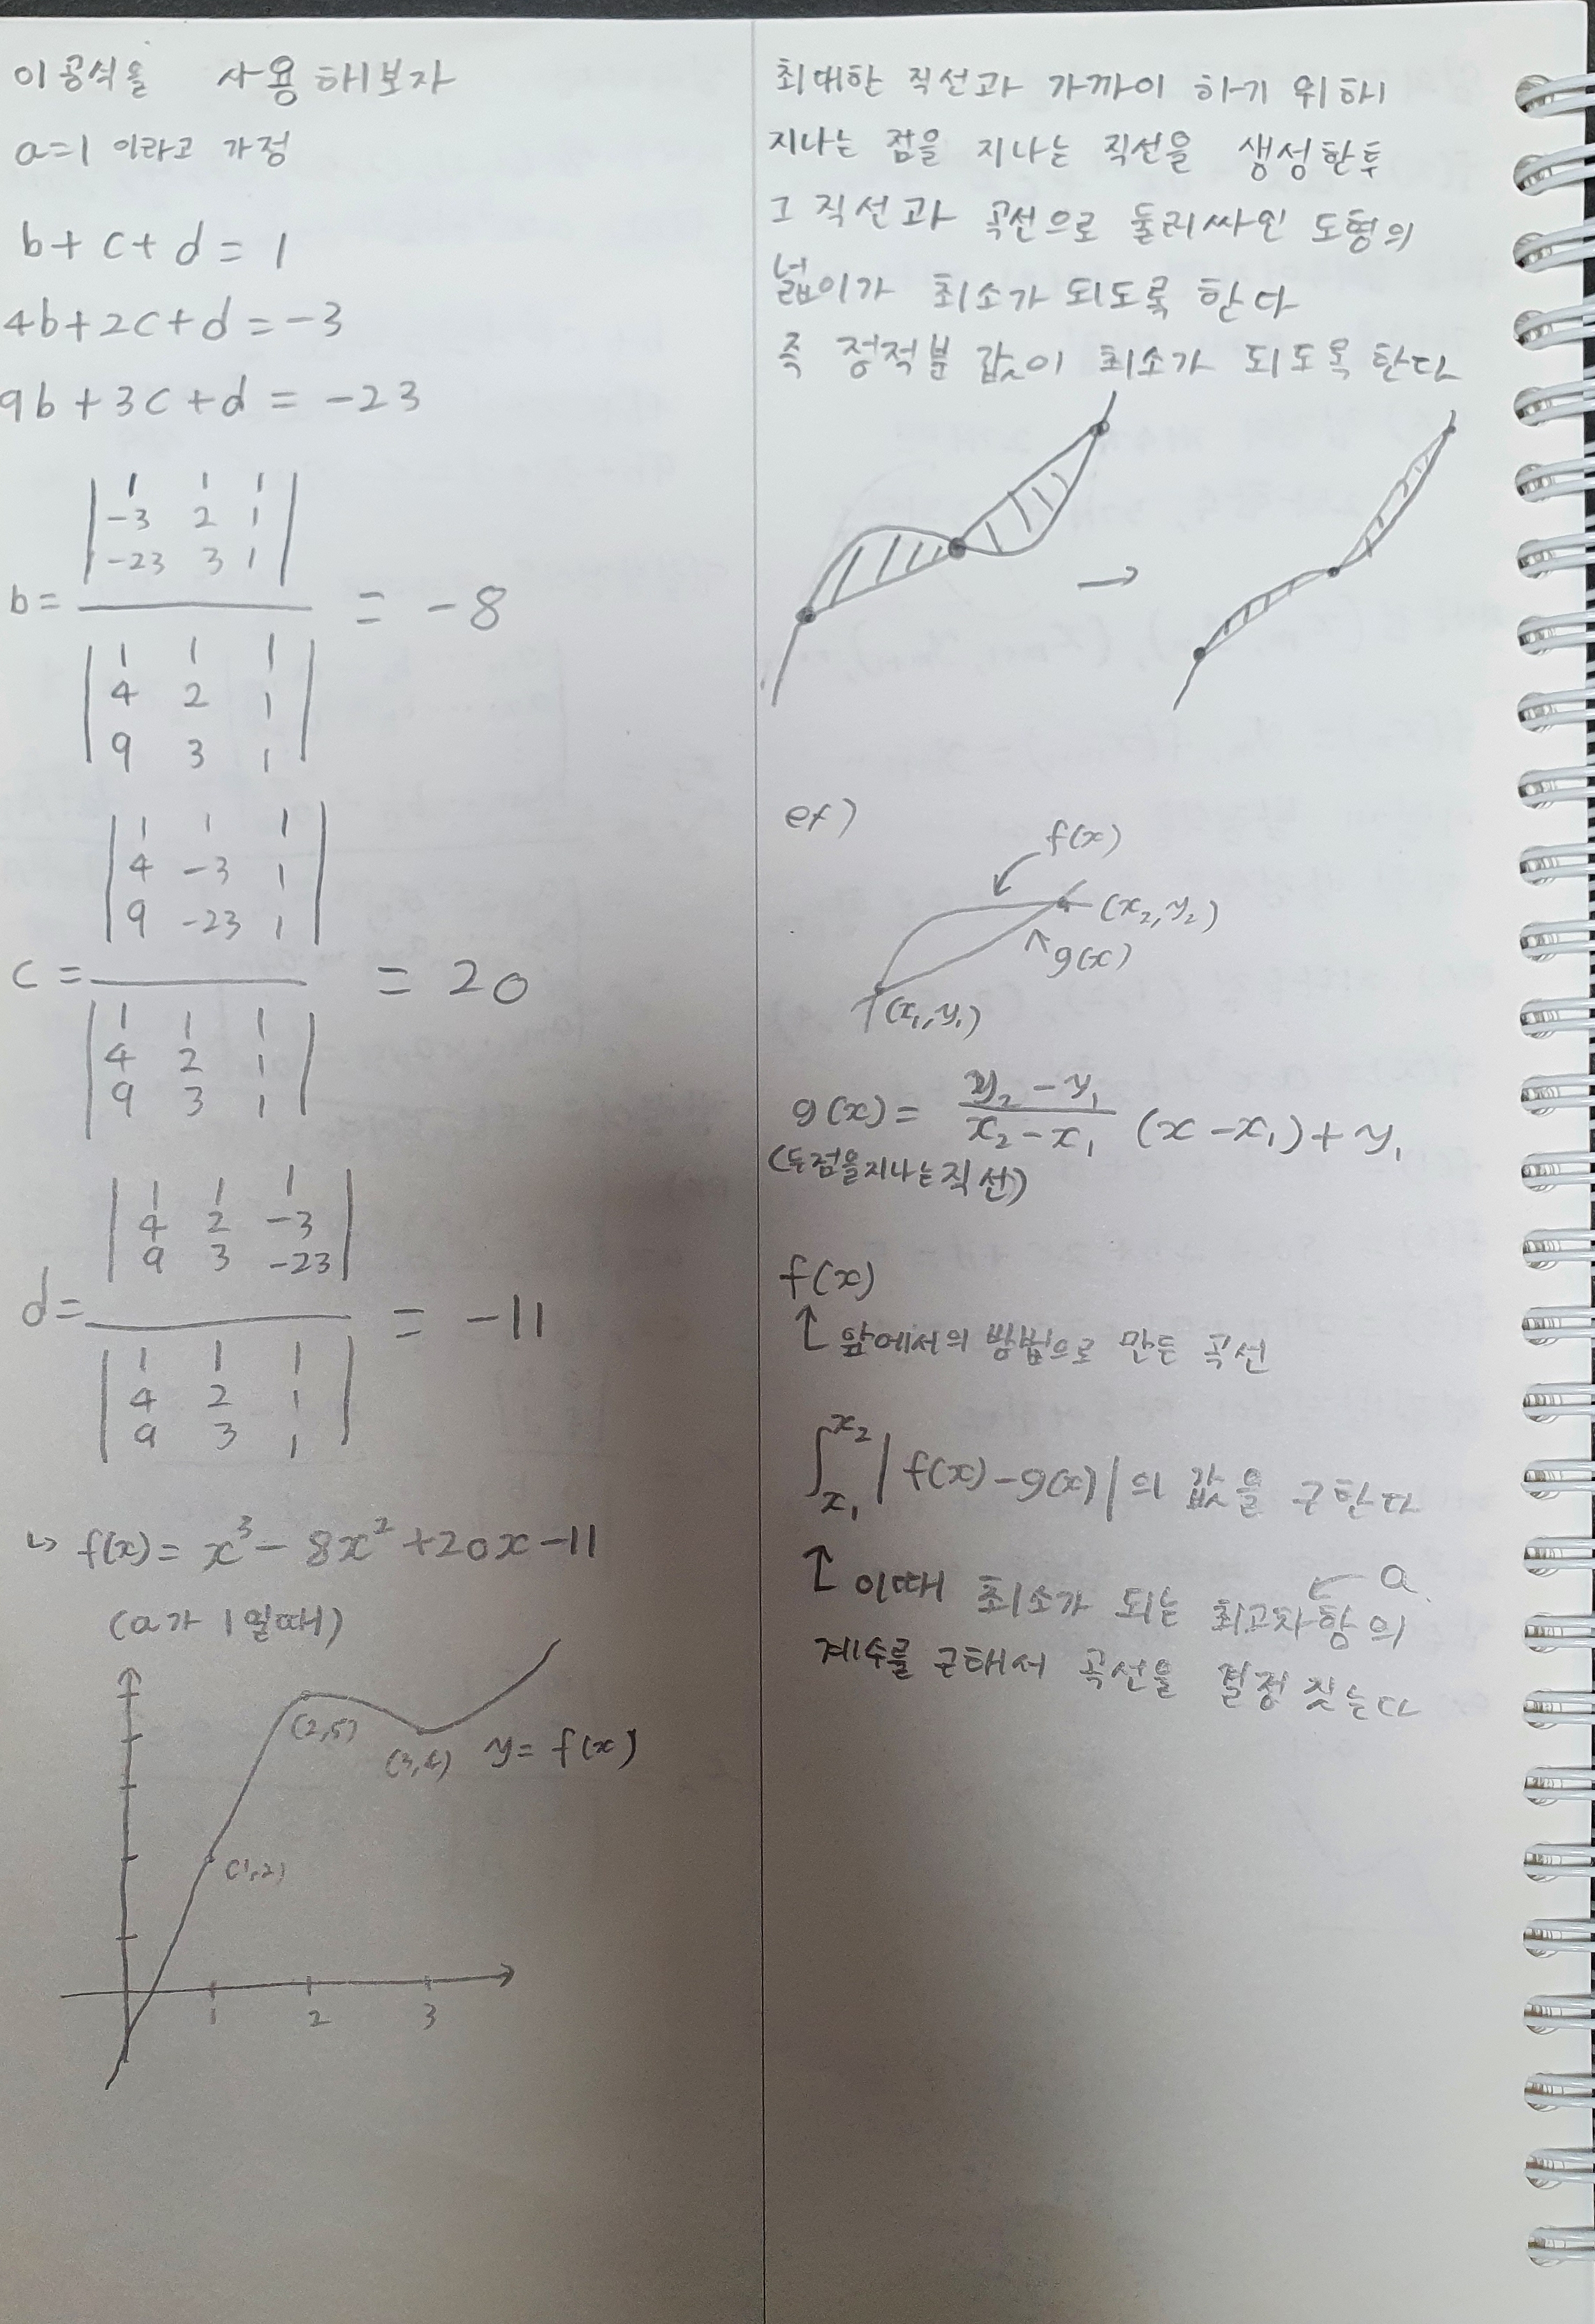 이 공식을 사용해보자
a=1 이라고 가정
b+c+d=1
4b+2c+d=-3
9b+3c+d=-23
| 1 1 1 |
| -3 2 1 |
| -23 3 1 |
b= = -8
| 1 1 1 |
| 4 2 1 |
| 9 3 1 |
| 1 1 1 |
| 4 -3 1 |
| 9 -23 1 |
c= = 20
| 1 1 1 |
| 4 2 1 |
| 9 3 1 |
| 1 1 1 |
| 4 2 -3 |
| 9 3 -23 |
d= = -11
| 1 1 1 |
| 4 2 1 |
| 9 3 1 |
↳ f(x)= x³-8x²+20x-11
(a가 1일때)
(2,5)
(3,4) y=f(x)
(1,2)
1 2 3
최대한 직선과 가까이 하기 위해
지나는 점을 지나는 직선을 생성한 후
그 직선과 곡선으로 둘러싸인 도형의
넓이가 최소가 되도록 한다
즉 정적분 값이 최소가 되도록 한다
→
ex)
f(x)
(x₂,y₂)
g(x)
(x₁,y₁)
g(x)= (y₂-y₁)/(x₂-x₁) (x-x₁)+y₁
(두점을지나는직선)
f(x)
↑ 앞에서의 방법으로 만든 곡선
∫_{x₁}^{x₂} |f(x)-g(x)|의 값을 구한다
a
↑ 이때 최소가 되는 최고차항의
계수를 구해서 곡선을 결정 짓는다